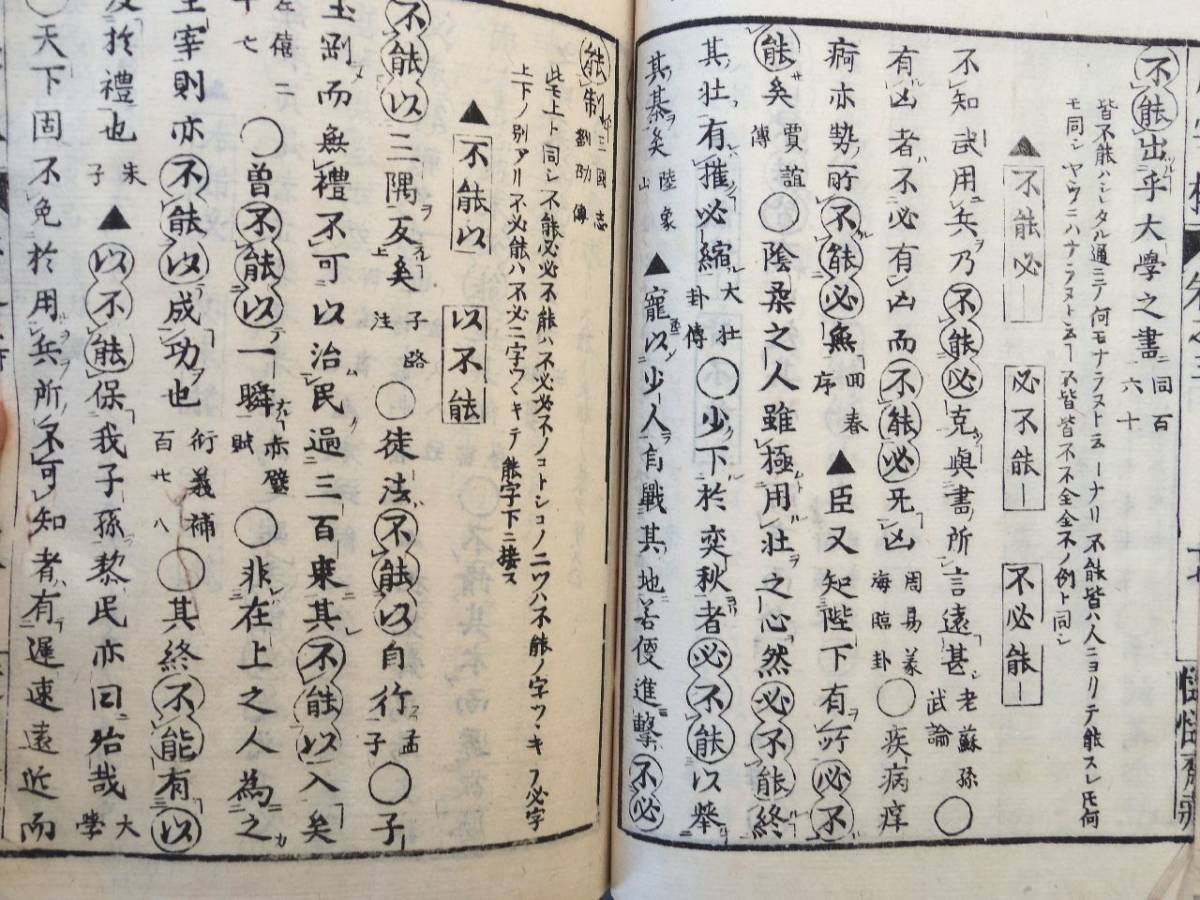 不能出乎大學之書 同百六十
皆不能ハシタル通ニテ何モナラヌト云フーナリ不能皆ハ人ニヨリテ能スレ𪜈何
モ同シヤウニハナラヌト云ー不皆皆不不全全不ノ例ト同シ
▲不能必ー 必不能ー 不必能ー
不知武用兵乃不能必克與書所言遠甚 老蘇孫武論 ○
有凶者不必有凶而不能必无凶 周易義海臨卦 ○疾病痒
痾亦勢所不能必無 回春序 ▲臣又知陛下有所必不
能矣 賈誼傳 ○陰柔之人雖極用壯之心然必不能終
其壯有摧必縮 大壯卦傳 ○少下於奕秋者必不能以舉
其棊矣 陸象山 ▲寵以少人有戰其地若便進擊不必
能制 三國志劉劭傳
此モ上ト同シ不能必必不能ハ不必必不ノコトシコノ二ツハ不能ノ字ツヽキフ必字
上下ノ別アリ不必能ハ不必二字ツヽキテ能字下ニ接ス
▲不能以 以不能
不能以三隅反矣 子路上注 ○徒法不能以自行 孟子 ○子
玉剛而無禮不可以治民過三百乘其不能以入矣
左僖二十七 ○曾不能以一瞬 赤壁賦 ○非在上之人為之
主宰則亦不能以成功也 術義補百廿八 ○其終不能有以
反於禮也 朱子 ▲以不能保我子孫黎民亦曰殆哉 大學
○天下固不免於用兵所不可知者有遲速遠近而